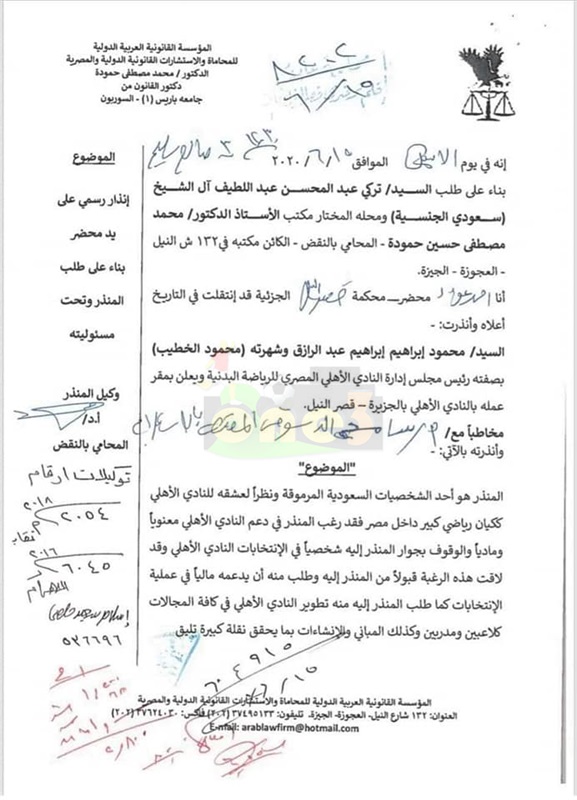 المؤسسة القانونية العربية الدولية
للمحاماة والاستشارات القانونية الدولية والمصرية
الدكتور / محمد مصطفى حمودة
دكتور القانون من
جامعه باريس (١) - السوربون
الموضوع
إنذار رسمي على
يد محضر
بناء على طلب
المنذر وتحت
مسئوليته
وكيل المنذر
أ.د/
المحامي بالنقض
توكيلات ارقام
٢٠١٨
٢٠٥٤
٢٠١٦
٦٠٤٥
الاهرام
٥٣٦٦٩٦
إنه في يوم الاثنين الموافق ٢٠٢٠/٦/١٥
بناء على طلب السيد/ تركي عبد المحسن عبد اللطيف آل الشيخ
(سعودي الجنسية) ومحله المختار مكتب الأستاذ الدكتور/ محمد
مصطفى حسين حمودة - المحامي بالنقض - الكائن مكتبه في ١٣٢ ش النيل
- العجوزة - الجيزة.
أنا محضر- محكمة قصر النيل الجزئية قد إنتقلت في التاريخ
أعلاه وأنذرت: -
السيد/ محمود إبراهيم إبراهيم عبد الرازق وشهرته (محمود الخطيب)
بصفته رئيس مجلس إدارة النادي الأهلي المصري للرياضة البدنية ويعلن بمقر
عمله بالنادي الأهلي بالجزيرة – قصر النيل.
مخاطباً مع/
وأنذرته بالآتي: -
"الموضوع"
المنذر هو أحد الشخصيات السعودية المرموقة ونظراً لعشقه للنادي الأهلي
ككيان رياضي كبير داخل مصر فقد رغب المنذر في دعم النادي الأهلي معنوياً
ومادياً والوقوف بجوار المنذر إليه شخصياً في الإنتخابات النادي الأهلي وقد
لاقت هذه الرغبة قبولاً من المنذر إليه وطلب منه أن يدعمه مالياً في عملية
الإنتخابات كما طلب المنذر إليه منه تطوير النادي الأهلي في كافة المجالات
كلاعبين ومدربين وكذلك المباني والإنشاءات بما يحقق نقلة كبيرة تليق
المؤسسة القانونية العربية الدولية للمحاماة والاستشارات القانونية الدولية والمصرية
العنوان: ١٣٢ شارع النيل- العجوزة- الجيزة. تليفون: ٣٧٤٩٥١٣٣ (٢٠٢) فاكس: ٣٧٦٢٤٠٣٠ (٢٠٢)
E-mail: arablawfirm@hotmail.com